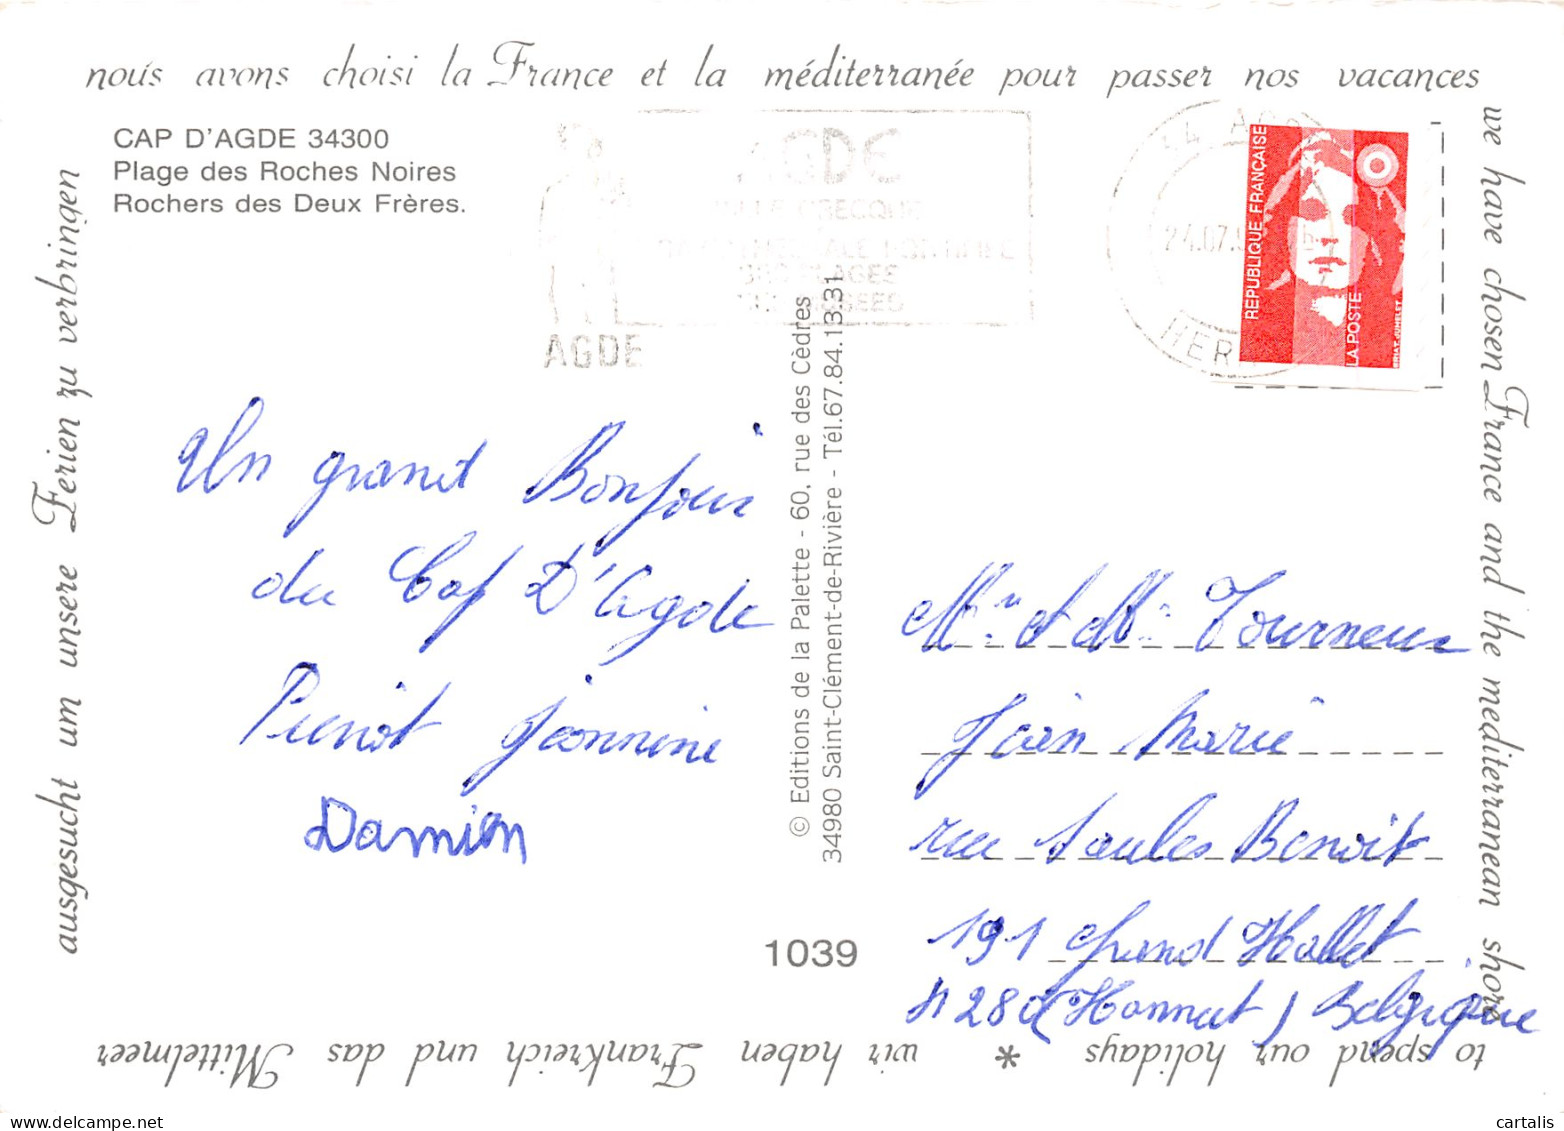 nous avons choisi la France et la méditerranée pour passer nos vacances
we have chosen France and the mediterranean shore
to spend our holidays * wir haben Frankreich und das Mittelmeer
ausgesucht um unsere Ferien zu verbringen
CAP D'AGDE 34300
Plage des Roches Noires
Rochers des Deux Frères.
AGDE
AGDE
24.07
REPUBLIQUE FRANÇAISE
LA POSTE
Un grand Bonjour
du Cap D'Agde
Pierrot Jeannine
Damien
© Editions de la Palette - 60, rue des Cèdres
34980 Saint-Clément-de-Rivière - Tél.67.84.13.31
1039
Mr et Me Tourneur
Jean Marie
rue Saules Benoit
191 Grand Hallet
4280 (Hannut) Belgique
cartalis